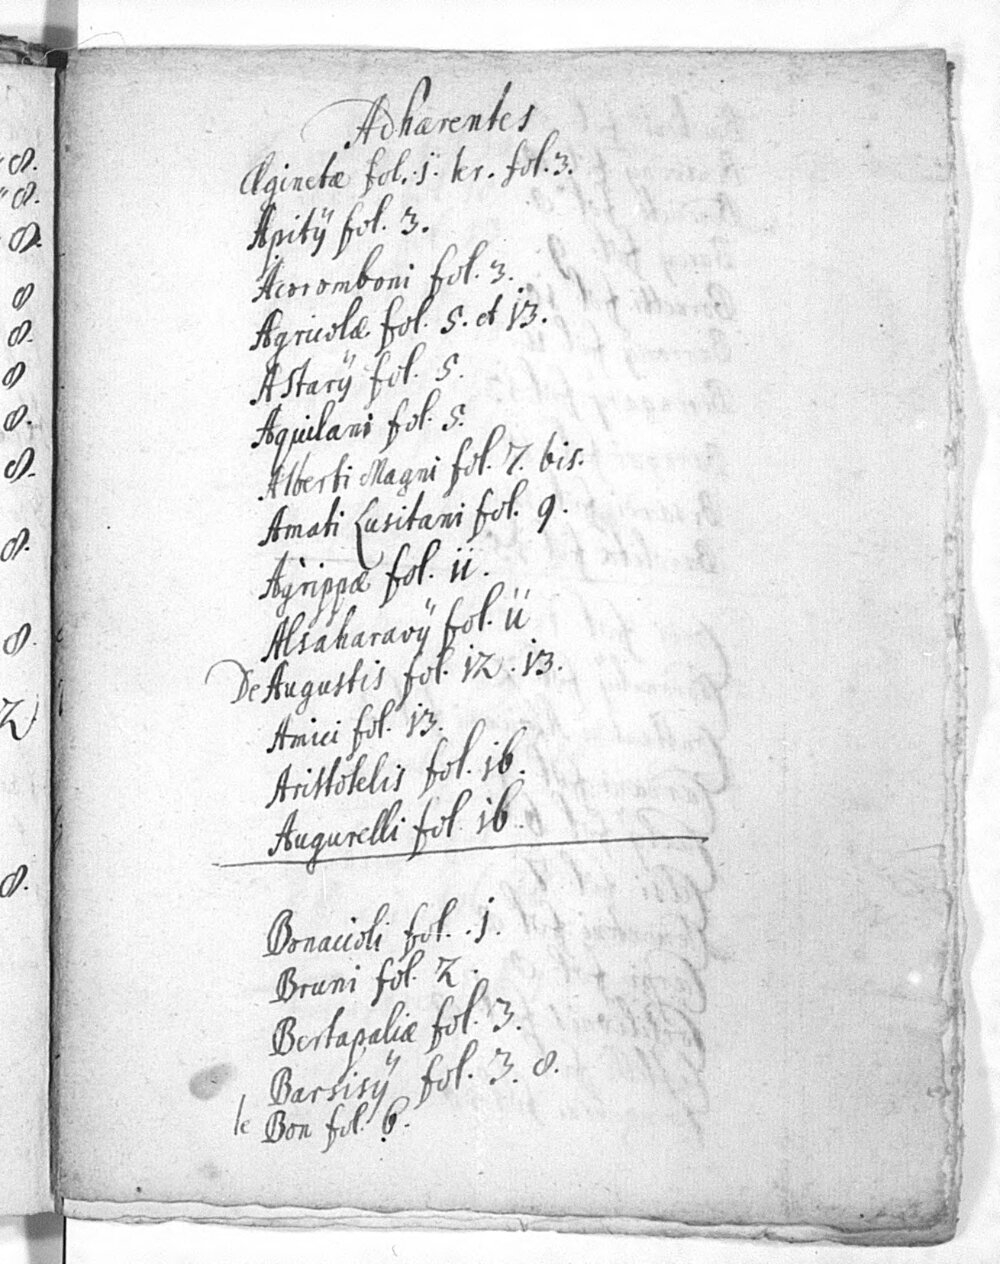 Adhærentes
Æginetæ fol. 1. ter. fol. 3.
Apitÿ fol. 3.
Acoromboni fol. 3.
Agricolæ fol. 5. et 13.
Astarÿ fol. 5.
Aquilani fol. 5.
Alberti Magni fol. 7. bis.
Amati Lusitani fol. 9.
Agrippæ fol. 11.
Alsaharavÿ fol. 11
De Augustis fol. 12. 13.
Amici fol. 13.
Aristotelis fol. 16.
Augurelli fol. 16.
Bonaccioli fol. 1.
Bruni fol. 2.
Bertapaliæ fol. 3.
Barsisÿ fol. 3. 8.
le Bon fol. 6.
8.
8.
8.
8
8.
8
8.
8.
8.
8.
2
8.